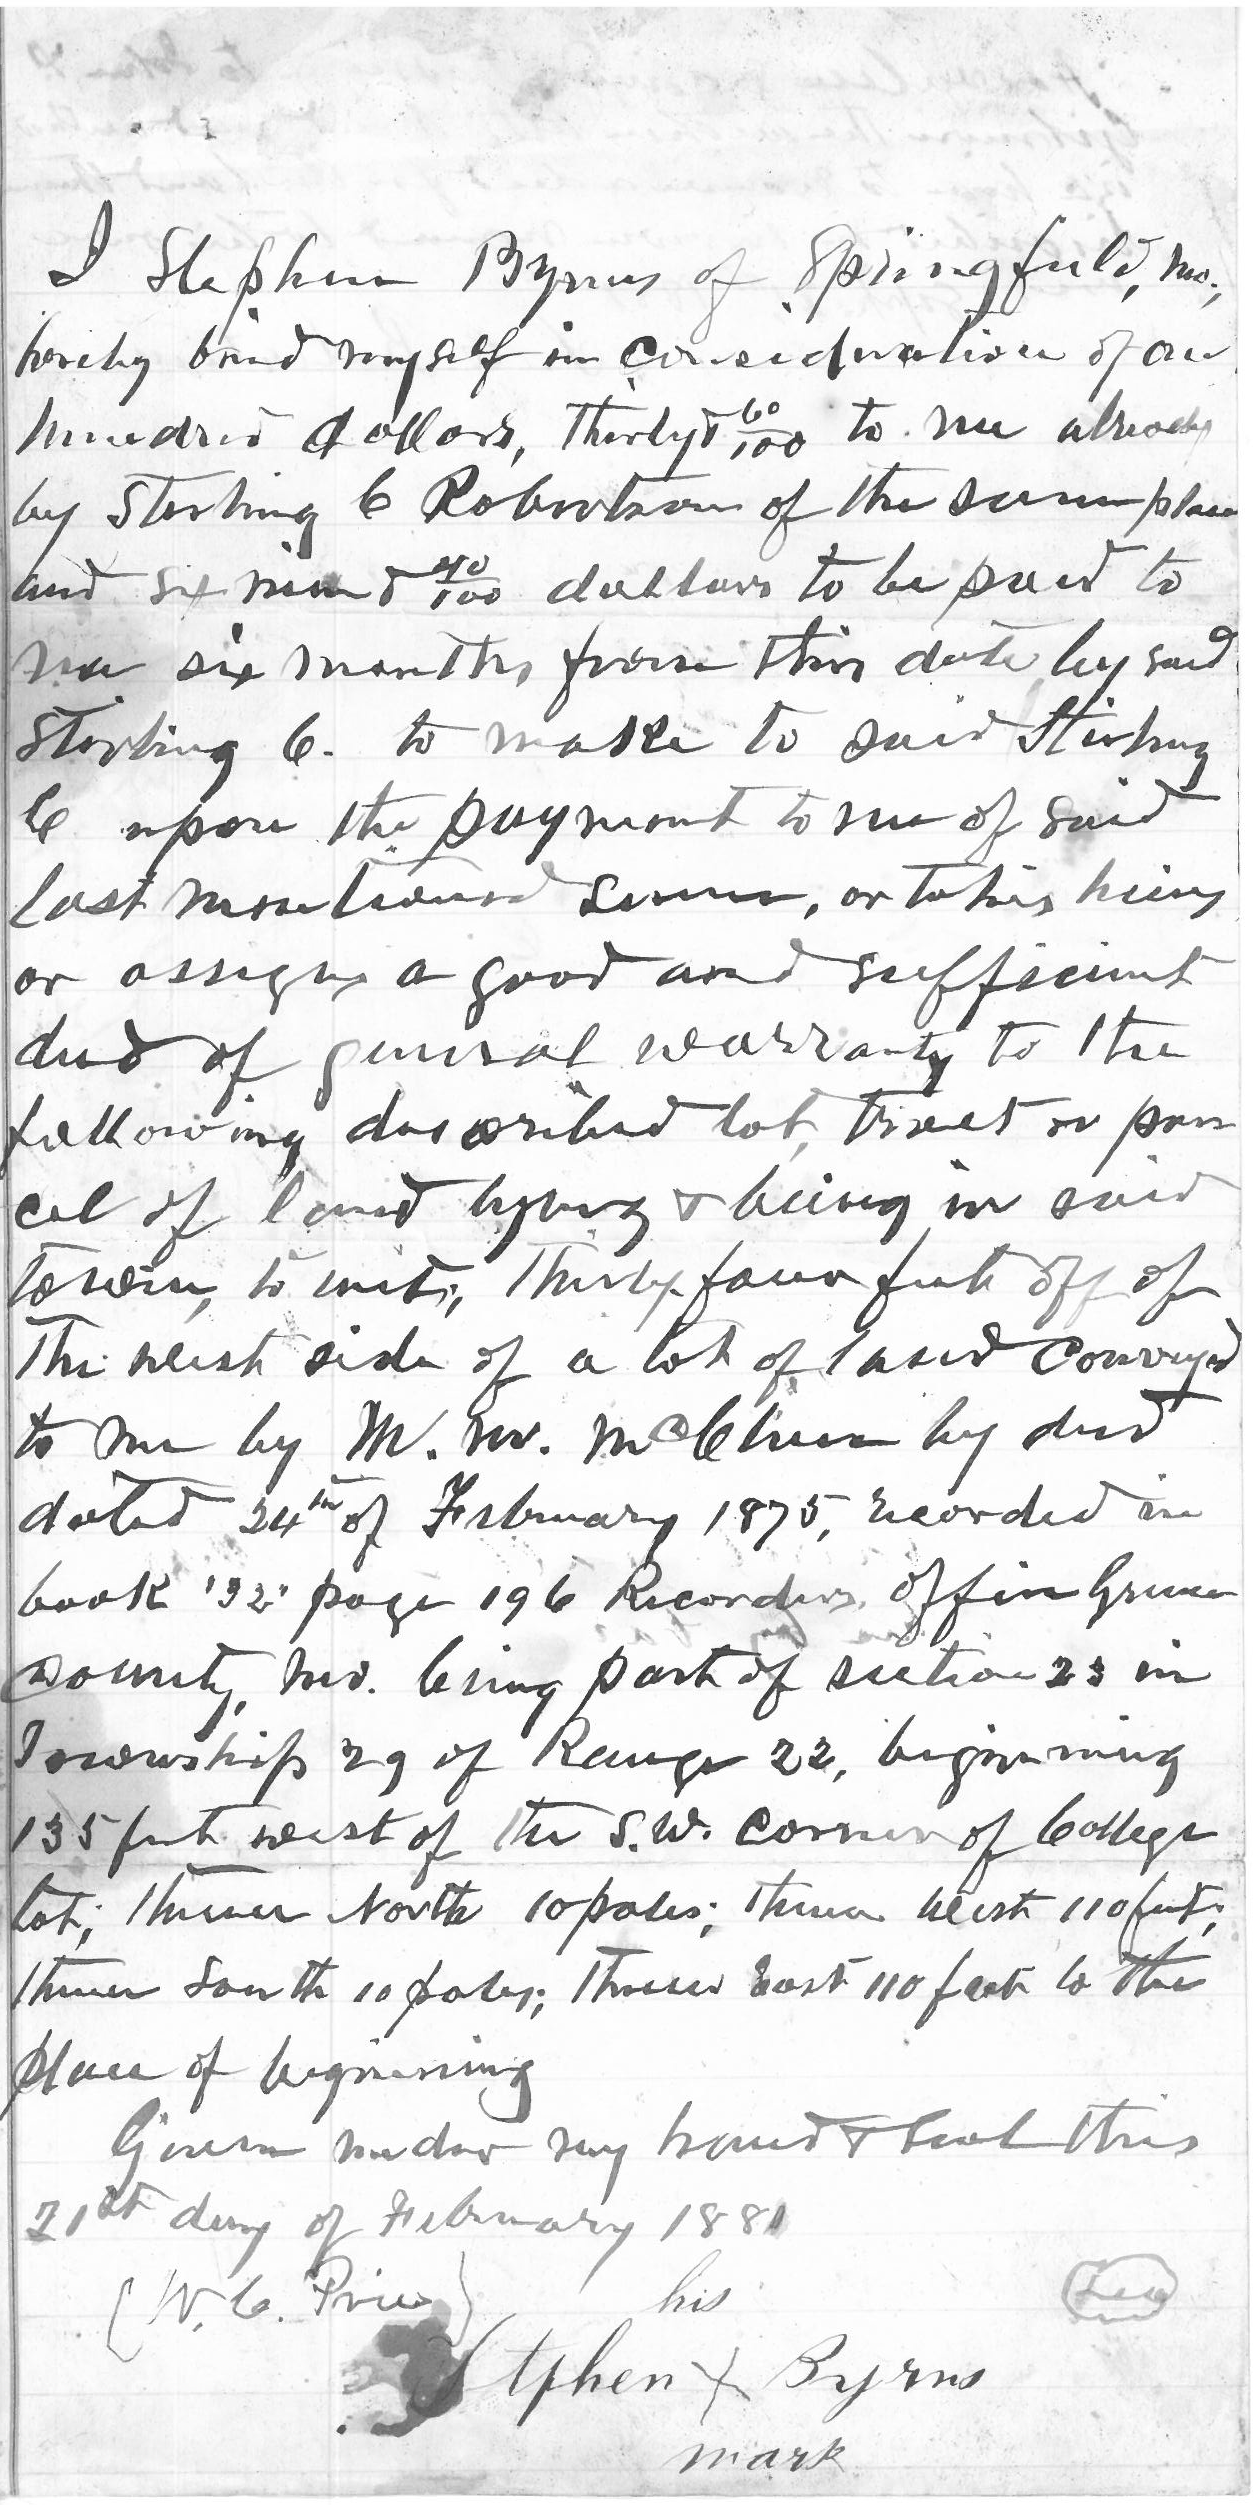 I Stephen Byrns of Springfield, Mo.,
hereby bind myself in consideration of one
hundred dollars, thirty & 60/100 to me already
by Sterling C Robertson of the same place
and sixty nine & 40/100 dollars to be paid to
me six months from this date by said
Sterling C. to make to said Sterling
C upon the payment to me of said
last mentioned sum, or to his heirs
or assigns a good and sufficient
deed of general warranty to the
following described lot, tract or par
cel of land lying & being in said
town, to wit; Thirty-four feet off of
the west side of a lot of land conveyed
to me by M. W. McClure by deed
dated 24th of February 1875, recorded in
book '32' page 196 Recorders office Greene
county, Mo. being part of section 23 in
Township 29 of Range 22, beginning
135 feet west of the S.W. corner of College
lot; thence North 10 poles; thence West 110 feet;
thence South 10 poles; thence East 110 feet to the
place of beginning
Given under my hand & seal this
21st day of February 1881
(W. C. Price) his
Stphen X Byrns
mark